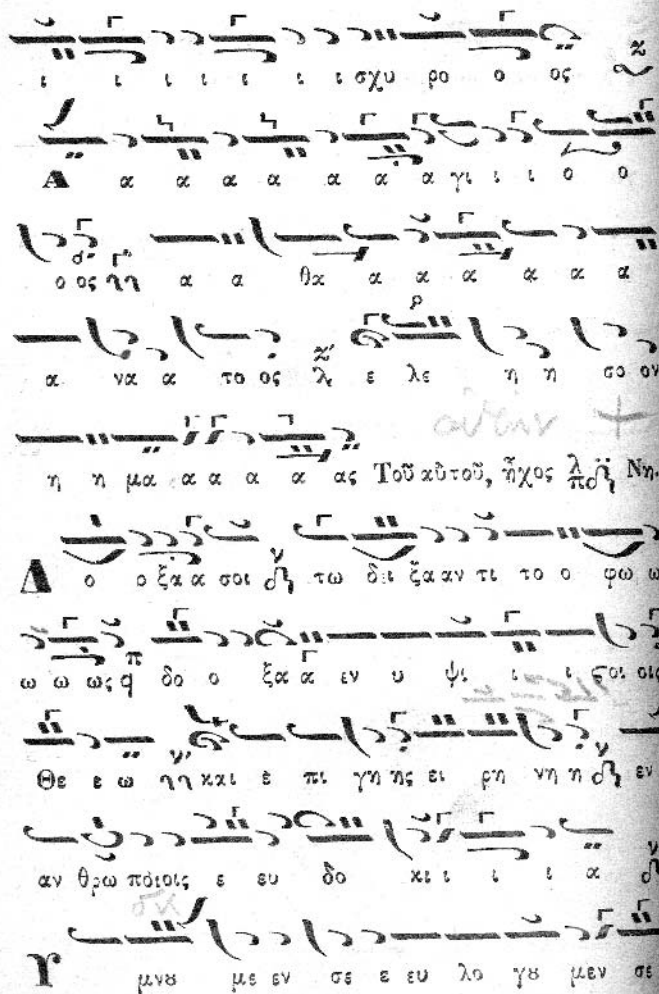 ι ι ι ι ι ι ι σχυ ρο ο ος
Α α α α α α α α γι ι ι ο ο
ο ος α α θα α α α α α α
α να α το ος ε λε η η σο ον
η η μα α α α α ας Τοῦ αὐτοῦ, ἦχος Νη.
Δ ο ο ξα α σοι τω δει ξα αν τι το ο φω ω
ω ω ως δο ο ξα α εν υ ψι ι ι ςοι οις
Θε ε ω και ε πι γη ης ει ρη νη η εν
αν θρω ποιοις ε ευ δο κι ι ι ι α
Υ μνȣ με εν σε ε ευ λο γȣ μεν σε